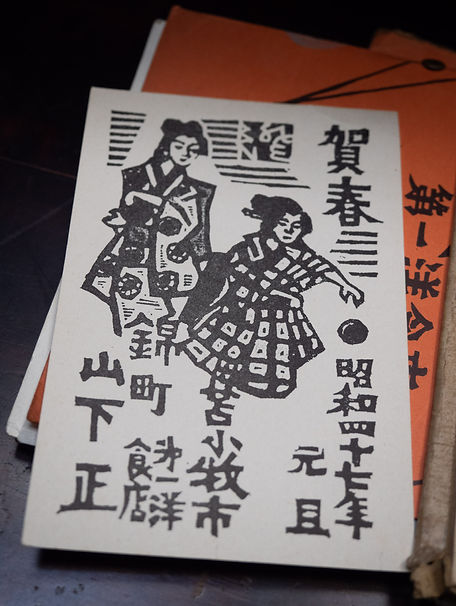 賀春
昭和四十七年
元旦
苫小牧市
錦町
第一洋
食店
山下正
第一洋食